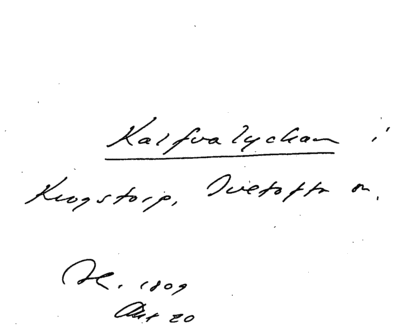 Kalfvalyckan i
Krogstorp, Ivetofta sn.
Sk. 1809
Akt 20